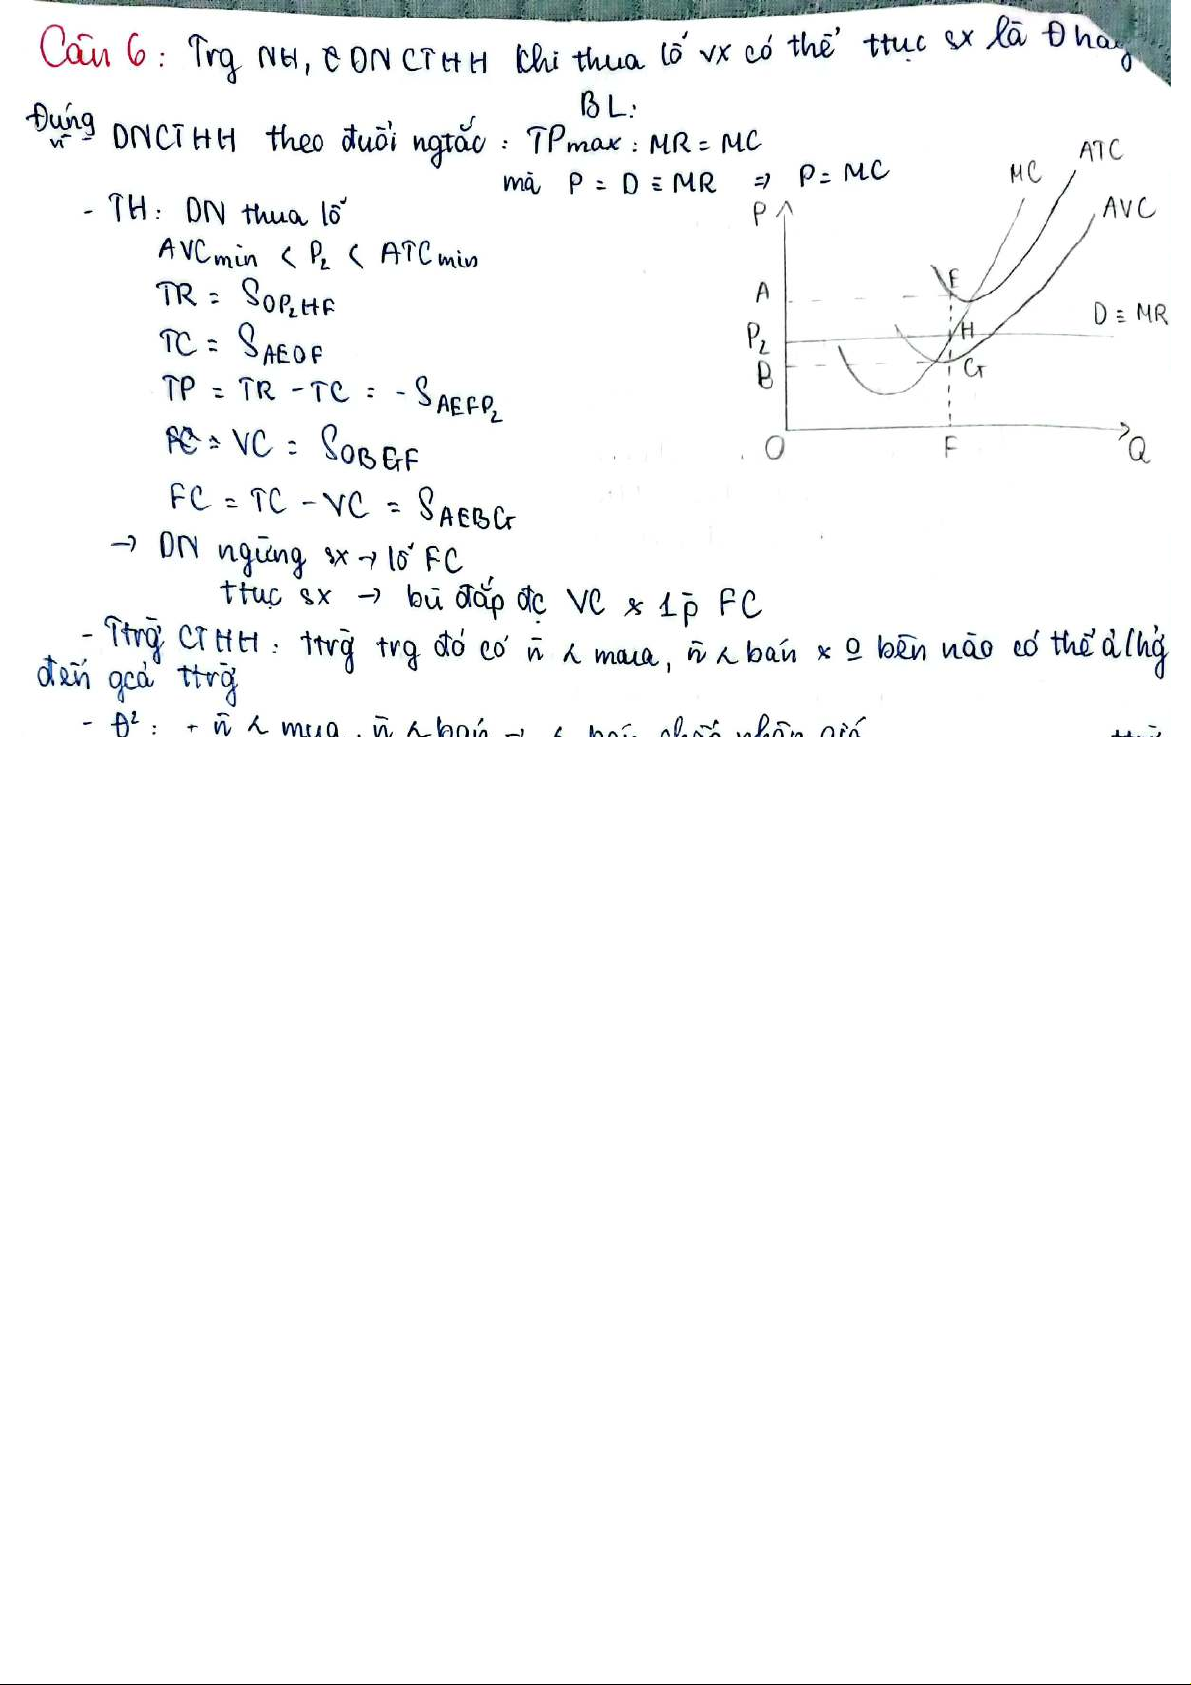 Câu 6: Trg NH, DNCTHH khi thua lỗ vx có thể ttục sx là Đ hay
BL:
Đúng vì DNCTHH theo đuổi ngtắc: TPmax: MR = MC
mà P = D ≡ MR ⇒ P = MC
- TH: DN thua lỗ
AVCmin < P2 < ATCmin
TR = SOP2HF
TC = SAEOF
TP = TR - TC = - SAEFP2
VC = SOBGF
FC = TC - VC = SAEBG
→ DN ngừng sx → lỗ FC
ttục sx → bù đắp đc VC & 1p̄ FC
P
MC
ATC
AVC
A
E
P2
H
D ≡ MR
B
G
O
F
Q
- Ttrg̀ CTHH: ttrg̀ trg đó có n̄ mua, n̄ bán & o bên nào có thể ả/hg̉
đến gcả ttrg̀
- Đ²: + n̄ mua, n̄ bán →